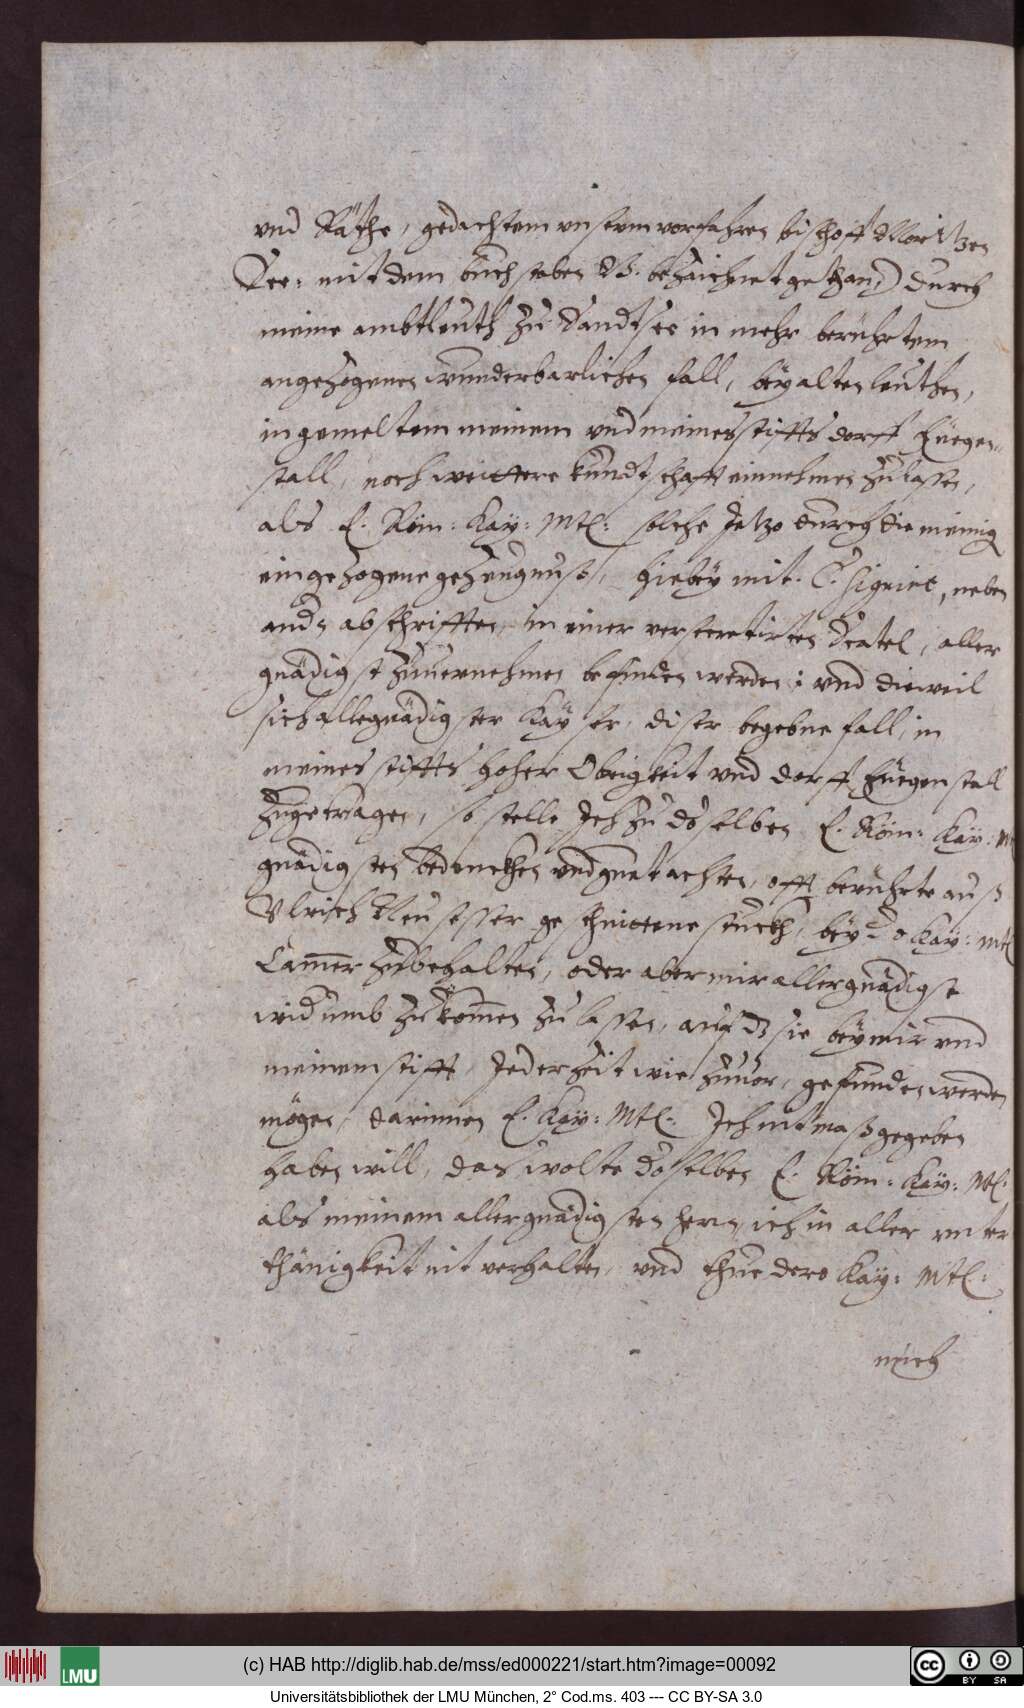 vnd Räthe, gedachtem vnserm vorfahren bischoff Moritzen
See: mit dem buchstaben B. bezaichnet gethan,) durch
meine ambtleuth zu Sandtsee in mehr berührtem
angezogenen wunderbarlichen fall, bey alten leuthen,
in gemeltem meinem vnd meines stiffts dorff Füegen-
stall, noch weittere kundtschafft einnehmen zulassen,
als E. Röm: Kay: Mtl: solche Jetzo durch die meinig
eingezogene gezeugnuß, hiebey mit C. signirt, neben
andn abschrifften, in einer verseretirten Scatel, aller
gnädigst zuuernehmen befinden werden; vnd dieweil
sich allegnädigster Kayser, diser begebne fall, in
meines stiffts hoher Obrigkeit vnd dorff Füegenstall
zugetragen, so stelle Ich zu dselben E. Röm: Kay: Mt
gnädigsten bedenckhen vnd guetachten, offt berührte auß
Vlrich Neusesser geschnittene stuckh, bey Kay: Mtl
Camer zubehalten, oder aber mir allergnädigst
widumb zukomen zu lassen, auf dz sie bey mir vnd
meinem stifft, Jederzeit wie zuuor, gefunden werden
mögen, darinnen E. Kay: Mtl: Ich nit maß gegeben
haben will, das wolte dselben E. Röm: Kay: Mtl.
als meinem allergnädigsten hern, ich in aller vnter
thänigkeit nit verhalten, vnd thue dero Kay: Mtl:
mich
(c) HAB http://diglib.hab.de/mss/ed000221/start.htm?image=00092
LMU
CC BY SA
Universitätsbibliothek der LMU München, 2° Cod.ms. 403 --- CC BY-SA 3.0